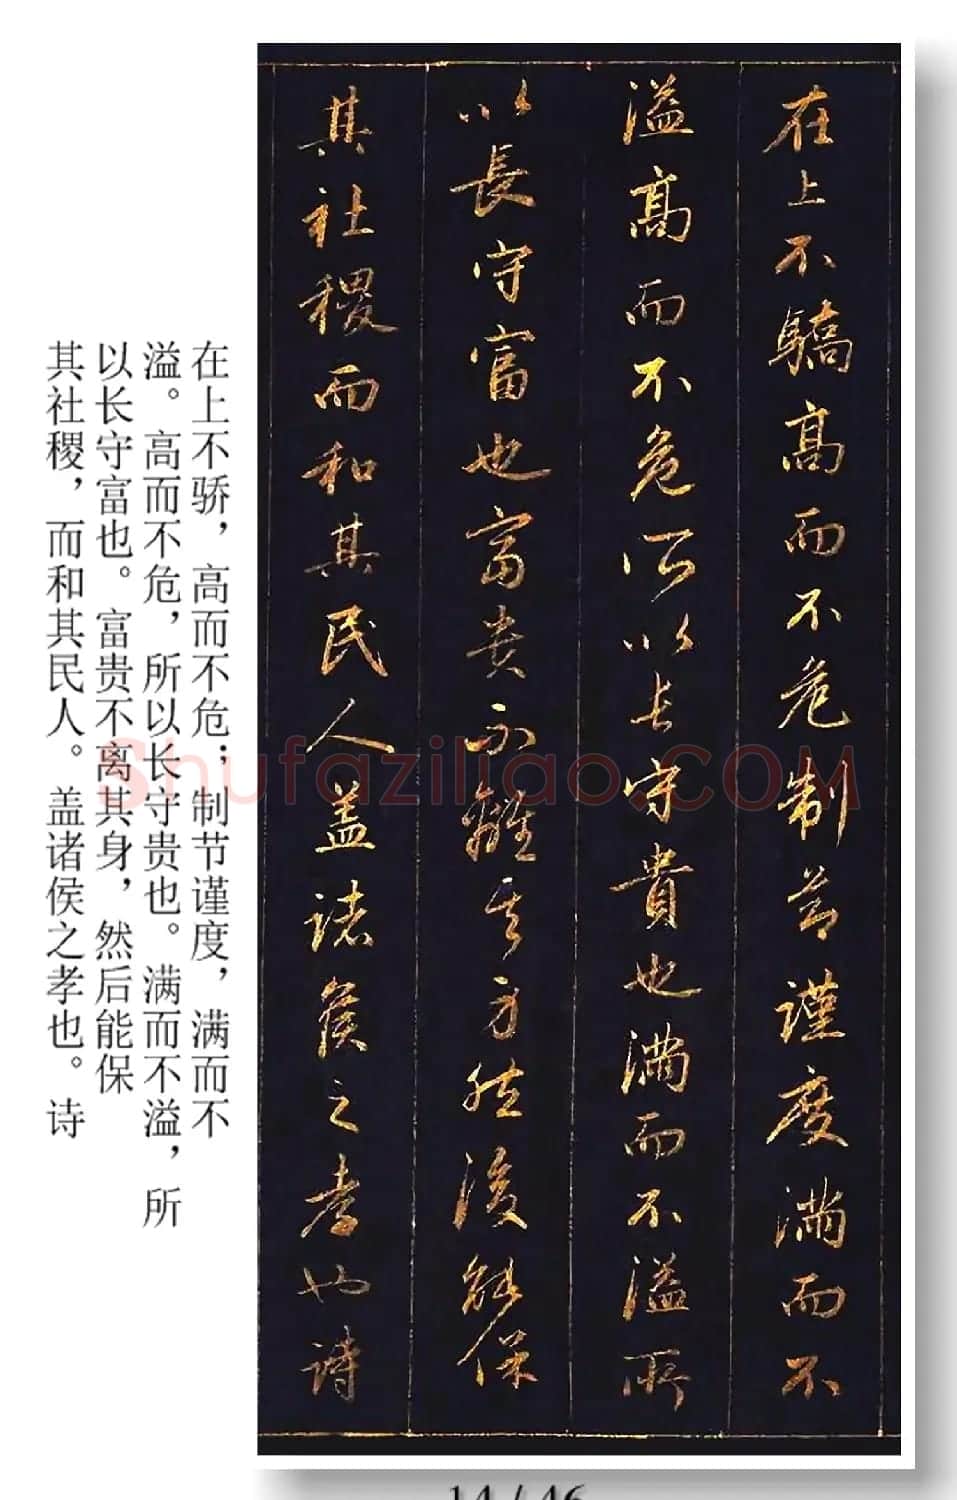 在上不驕高而不危制節謹度滿而不
溢高而不危所以長守貴也滿而不溢所
以長守富也富貴不離其身然後能保
其社稷而和其民人蓋諸侯之孝也詩
在上不骄，高而不危；制节谨度，满而不
溢。高而不危，所以长守贵也。满而不溢，所
以长守富也。富贵不离其身，然后能保
其社稷，而和其民人。盖诸侯之孝也。诗
Shufaziliao.COM
14 / 46